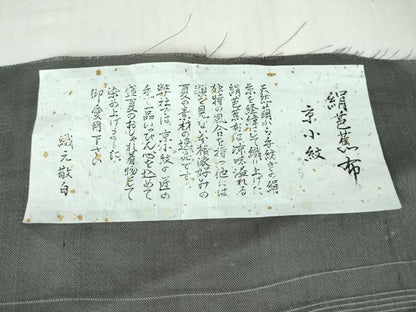 絹芭蕉布
京小紋
天然山繭から手紡ぎの絹
糸を経緯にも織上げた
絹芭蕉布は涼味溢れる
独特の風合を持ち他には
類を見ない本格派好みの
夏の素材の逸品です。
弊社では、京小紋の匠の
手で一品一品心を込めて
盛夏のおしゃれ着物として
染め上げました。
御愛用下さい
織元敬白